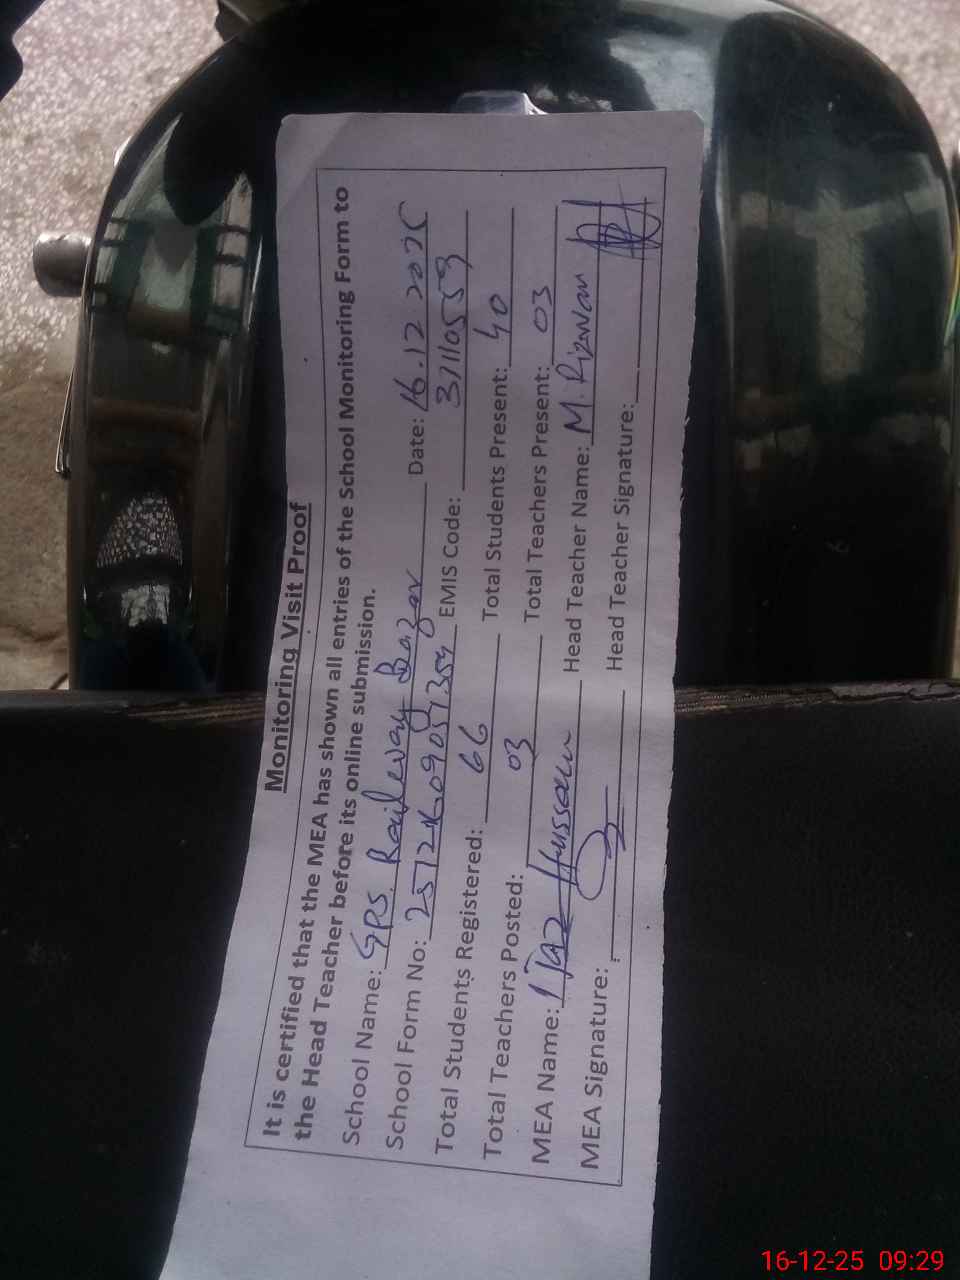 Monitoring Visit Proof
It is certified that the MEA has shown all entries of the School Monitoring Form to
the Head Teacher before its online submission.
School Name: GPS. Railway Bazar Date: 16.12 2025
School Form No: EMIS Code: 37110553
Total Students Registered: 66 Total Students Present: 40
Total Teachers Posted: 03 Total Teachers Present: 03
MEA Name: Ijaz Hussain Head Teacher Name: M. Rizwan
MEA Signature: Head Teacher Signature:
16-12-25 09:29